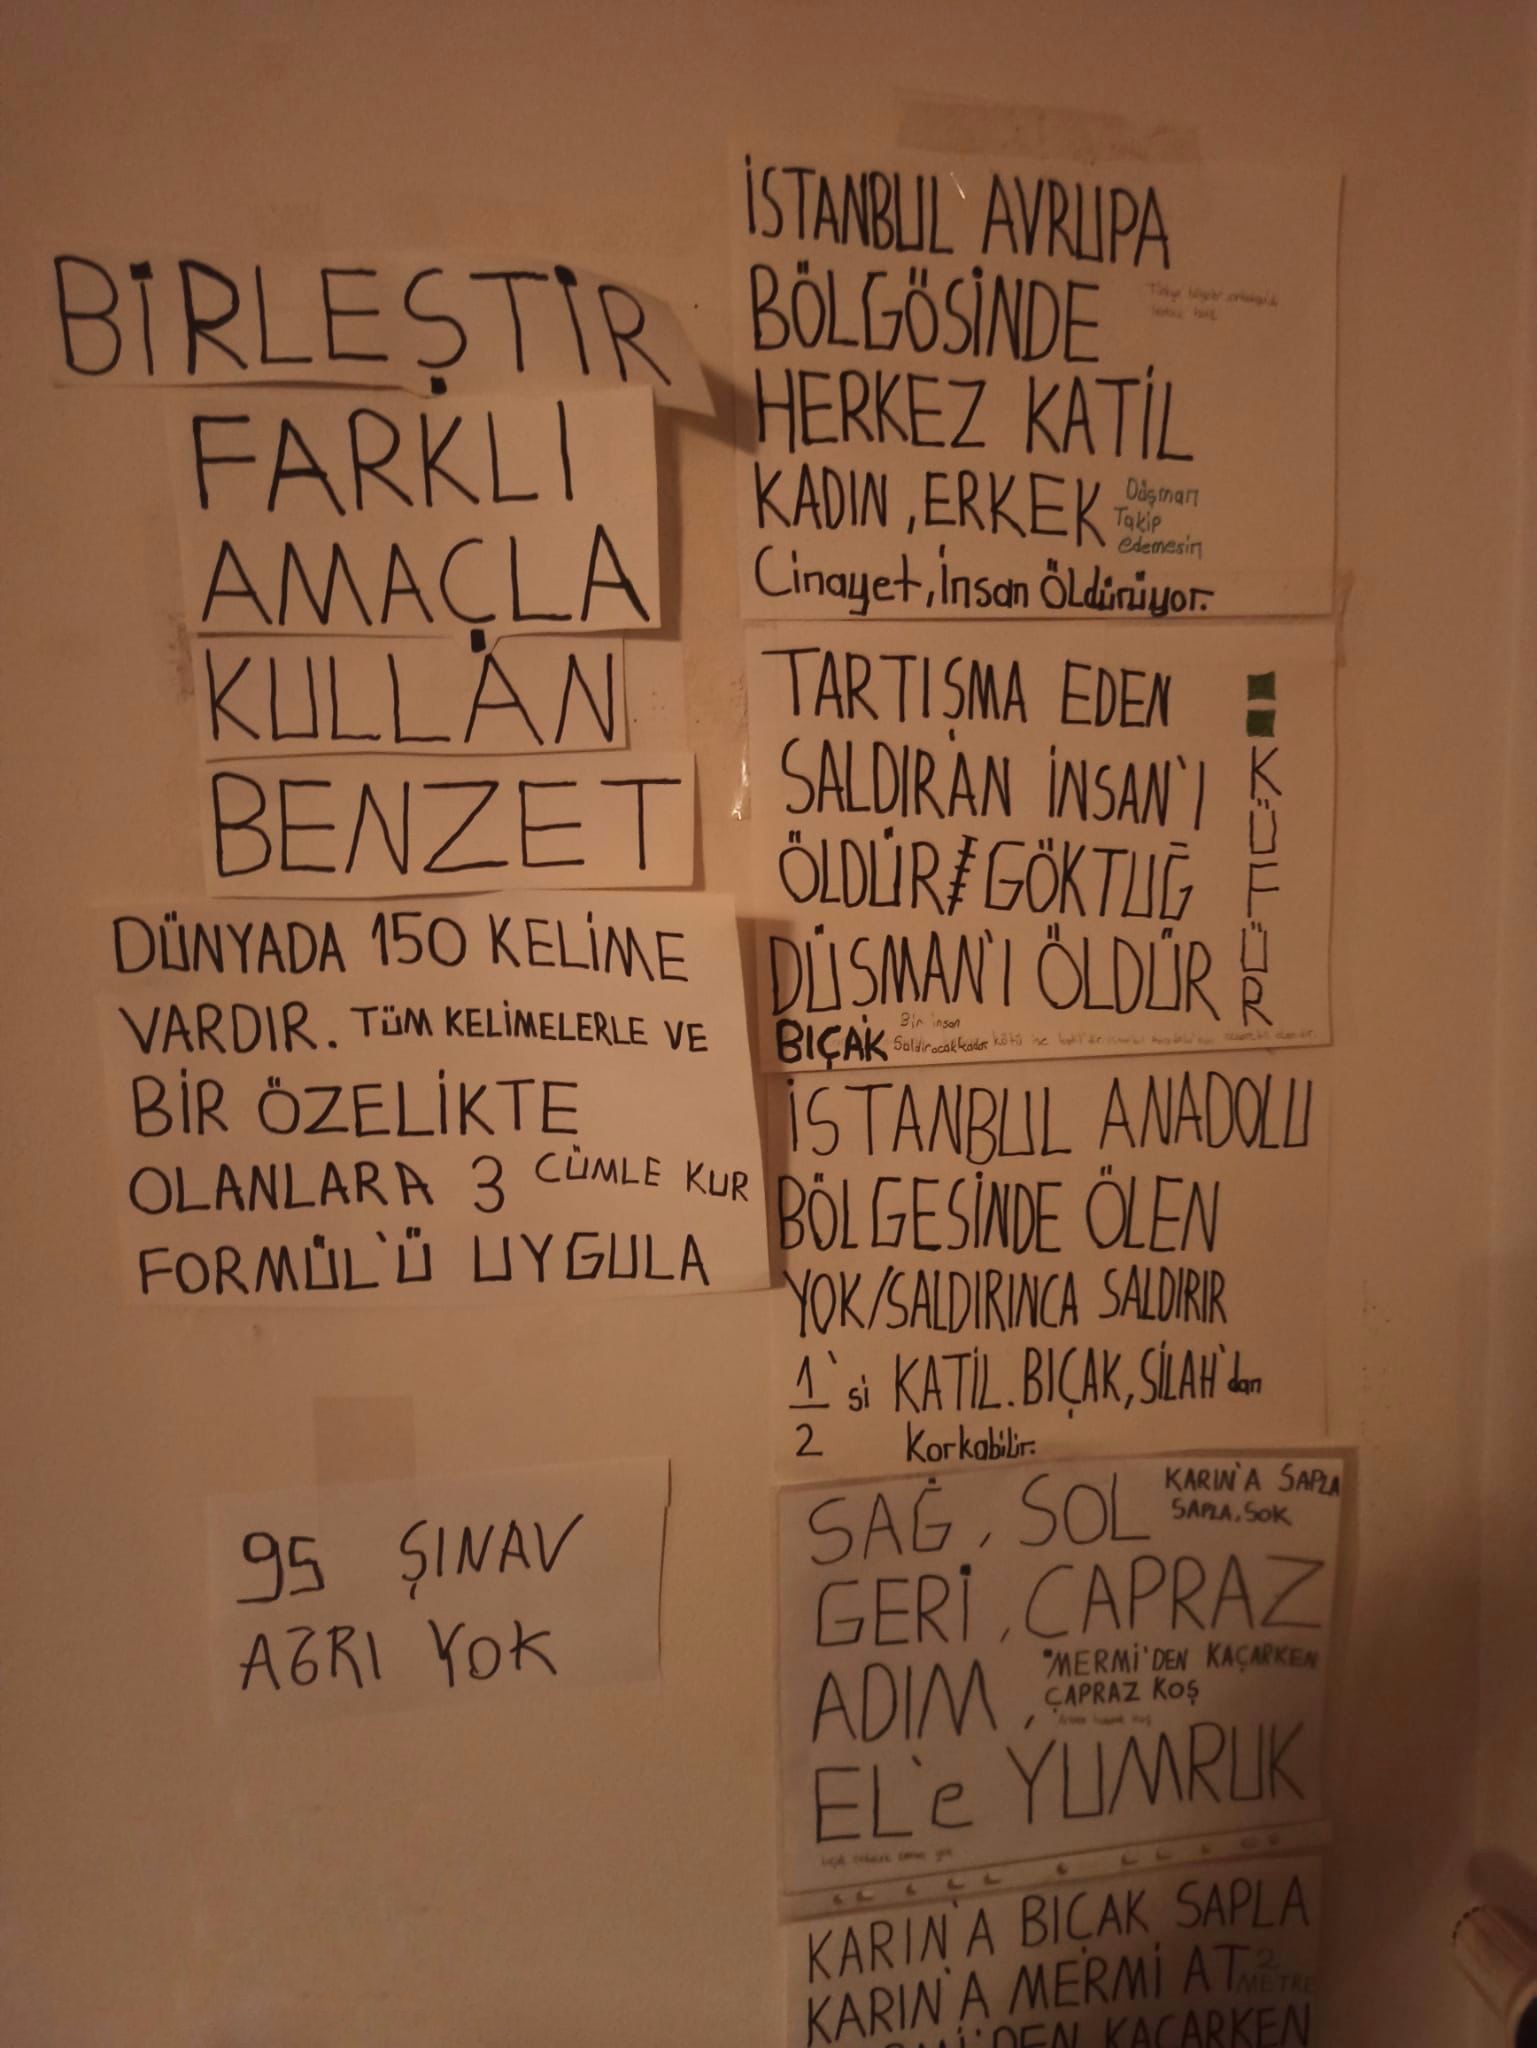 BİRLEŞTİR
FARKLI
AMAÇLA
KULLAN
BENZET
DÜNYADA 150 KELİME
VARDIR. TÜM KELİMELERLE VE
BİR ÖZELİKTE
OLANLARA 3 CÜMLE KUR
FORMÜL'Ü UYGULA
95 ŞINAV
AĞRI YOK
İSTANBUL AVRUPA
BÖLGÖSİNDE
HERKEZ KATİL
KADIN, ERKEK
Düşman
Takip
edemesin
Cinayet, İnsan Öldürüyor.
TARTIŞMA EDEN
SALDIRAN İNSAN'I
ÖLDÜR/GÖKTUĞ
DÜŞMAN'I ÖLDÜR
KÜFÜR
BIÇAK
Bir insan
Saldıracak kadar kötü ise
İSTANBUL ANADOLU
BÖLGESİNDE ÖLEN
YOK/SALDIRINCA SALDIRIR
1/2'si KATİL. BIÇAK, SİLAH'dan
Korkabilir.
SAĞ, SOL
KARIN'A SAPLA
SAPLA, SOK
GERİ, ÇAPRAZ
ADIM,
"MERMİ'DEN KAÇARKEN
ÇAPRAZ KOŞ
EL'e YUMRUK
KARIN'A BIÇAK SAPLA
KARIN'A MERMİ AT 2
METRE
KAÇARKEN